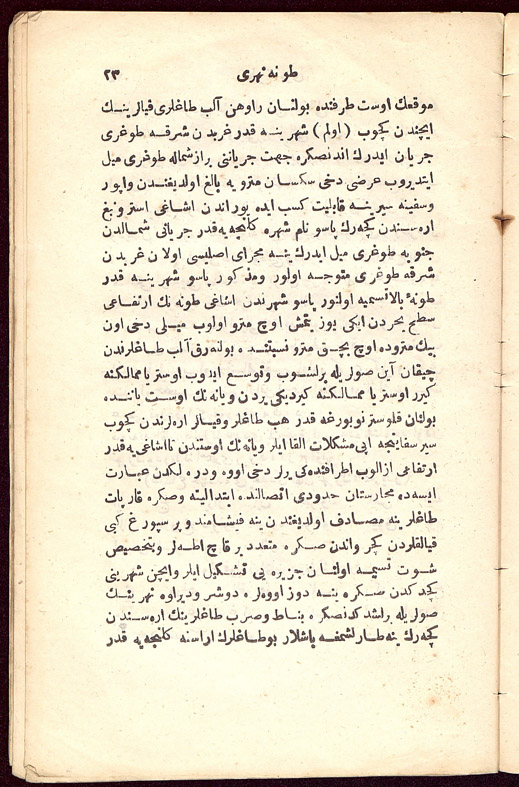 ٢٣ طونه نهری
موقعك اوست طرفنده بولنان راوهن آلب طاغلری قیالرینك
ایچندن كچوب (اولم) شهرینه قدر غربدن شرقه طوغری
جریان ایدرك اندنصكره جهت جریاننی براز شماله طوغری میل
ایتدیروب عرضی دخی سكسان مترو یه بالغ اولدیغندن واپور
وسفینه سیرینه قابلیت كسب ایده بوراندن اشاغی استر و نبغ
اره سندن كچه رك پاسو نام شهره كلنجه یه قدر جریانی شمالدن
جنوبه طوغری میل ایدرك ینه مجرای اصلیسی اولان غربدن
شرقه طوغری متوجه اولور ومذكور پاسو شهرینه قدر
طونهٔ بالا تسمیه اولنور پاسو شهرندن اشاغی طونه نك ارتفاعی
سطح بحردن ایكی یوز یتمش اوچ مترو اولوب میلی دخی اون
بیك متروده اوچ بچق مترو نسبتنده بولنه رق آلب طاغلرندن
چیقان آین صولریله برلشوب وتوسع ایدوب اوستریا ممالكنه
كیرر اوستریا ممالكنه كیردیكی یردن ویانه نك اوست یاننده
بولنان قلوستر نوبورغه قدر هب طاغلر وقیالر اره لرندن كچوب
سیر سفاینجه ایی مشكلات القا ایلر ویانه نك اوستندن تا اشاغی یه قدر
ارتفاعی ازالوب اطرافنده كی یرلر دخی اووه ودره لكدن عبارت
ایسه ده مجارستان حدودی اتصالنده ابتدا لیته وصكره قارپات
طاغلرینه مصادف اولدیغندن ینه فیشامند و پرسپورغ كبی
قیالقلردن كچر واندن صكره متعدد بر قاچ اطه لر وبتخصیص
شوت تسمیه اولنان جزیره یی تشكیل ایلر وایچن شهرینی
كچد كدن صكره ینه دوز اووه لره دوشر ودیراوه نهرینك
صولریله برلشد كدنصكره بناط وصرب طاغلرینك اره سندن
كچه رك ینه طارلشمغه باشلار بوطاغلرك اراسنه كلنجه یه قدر